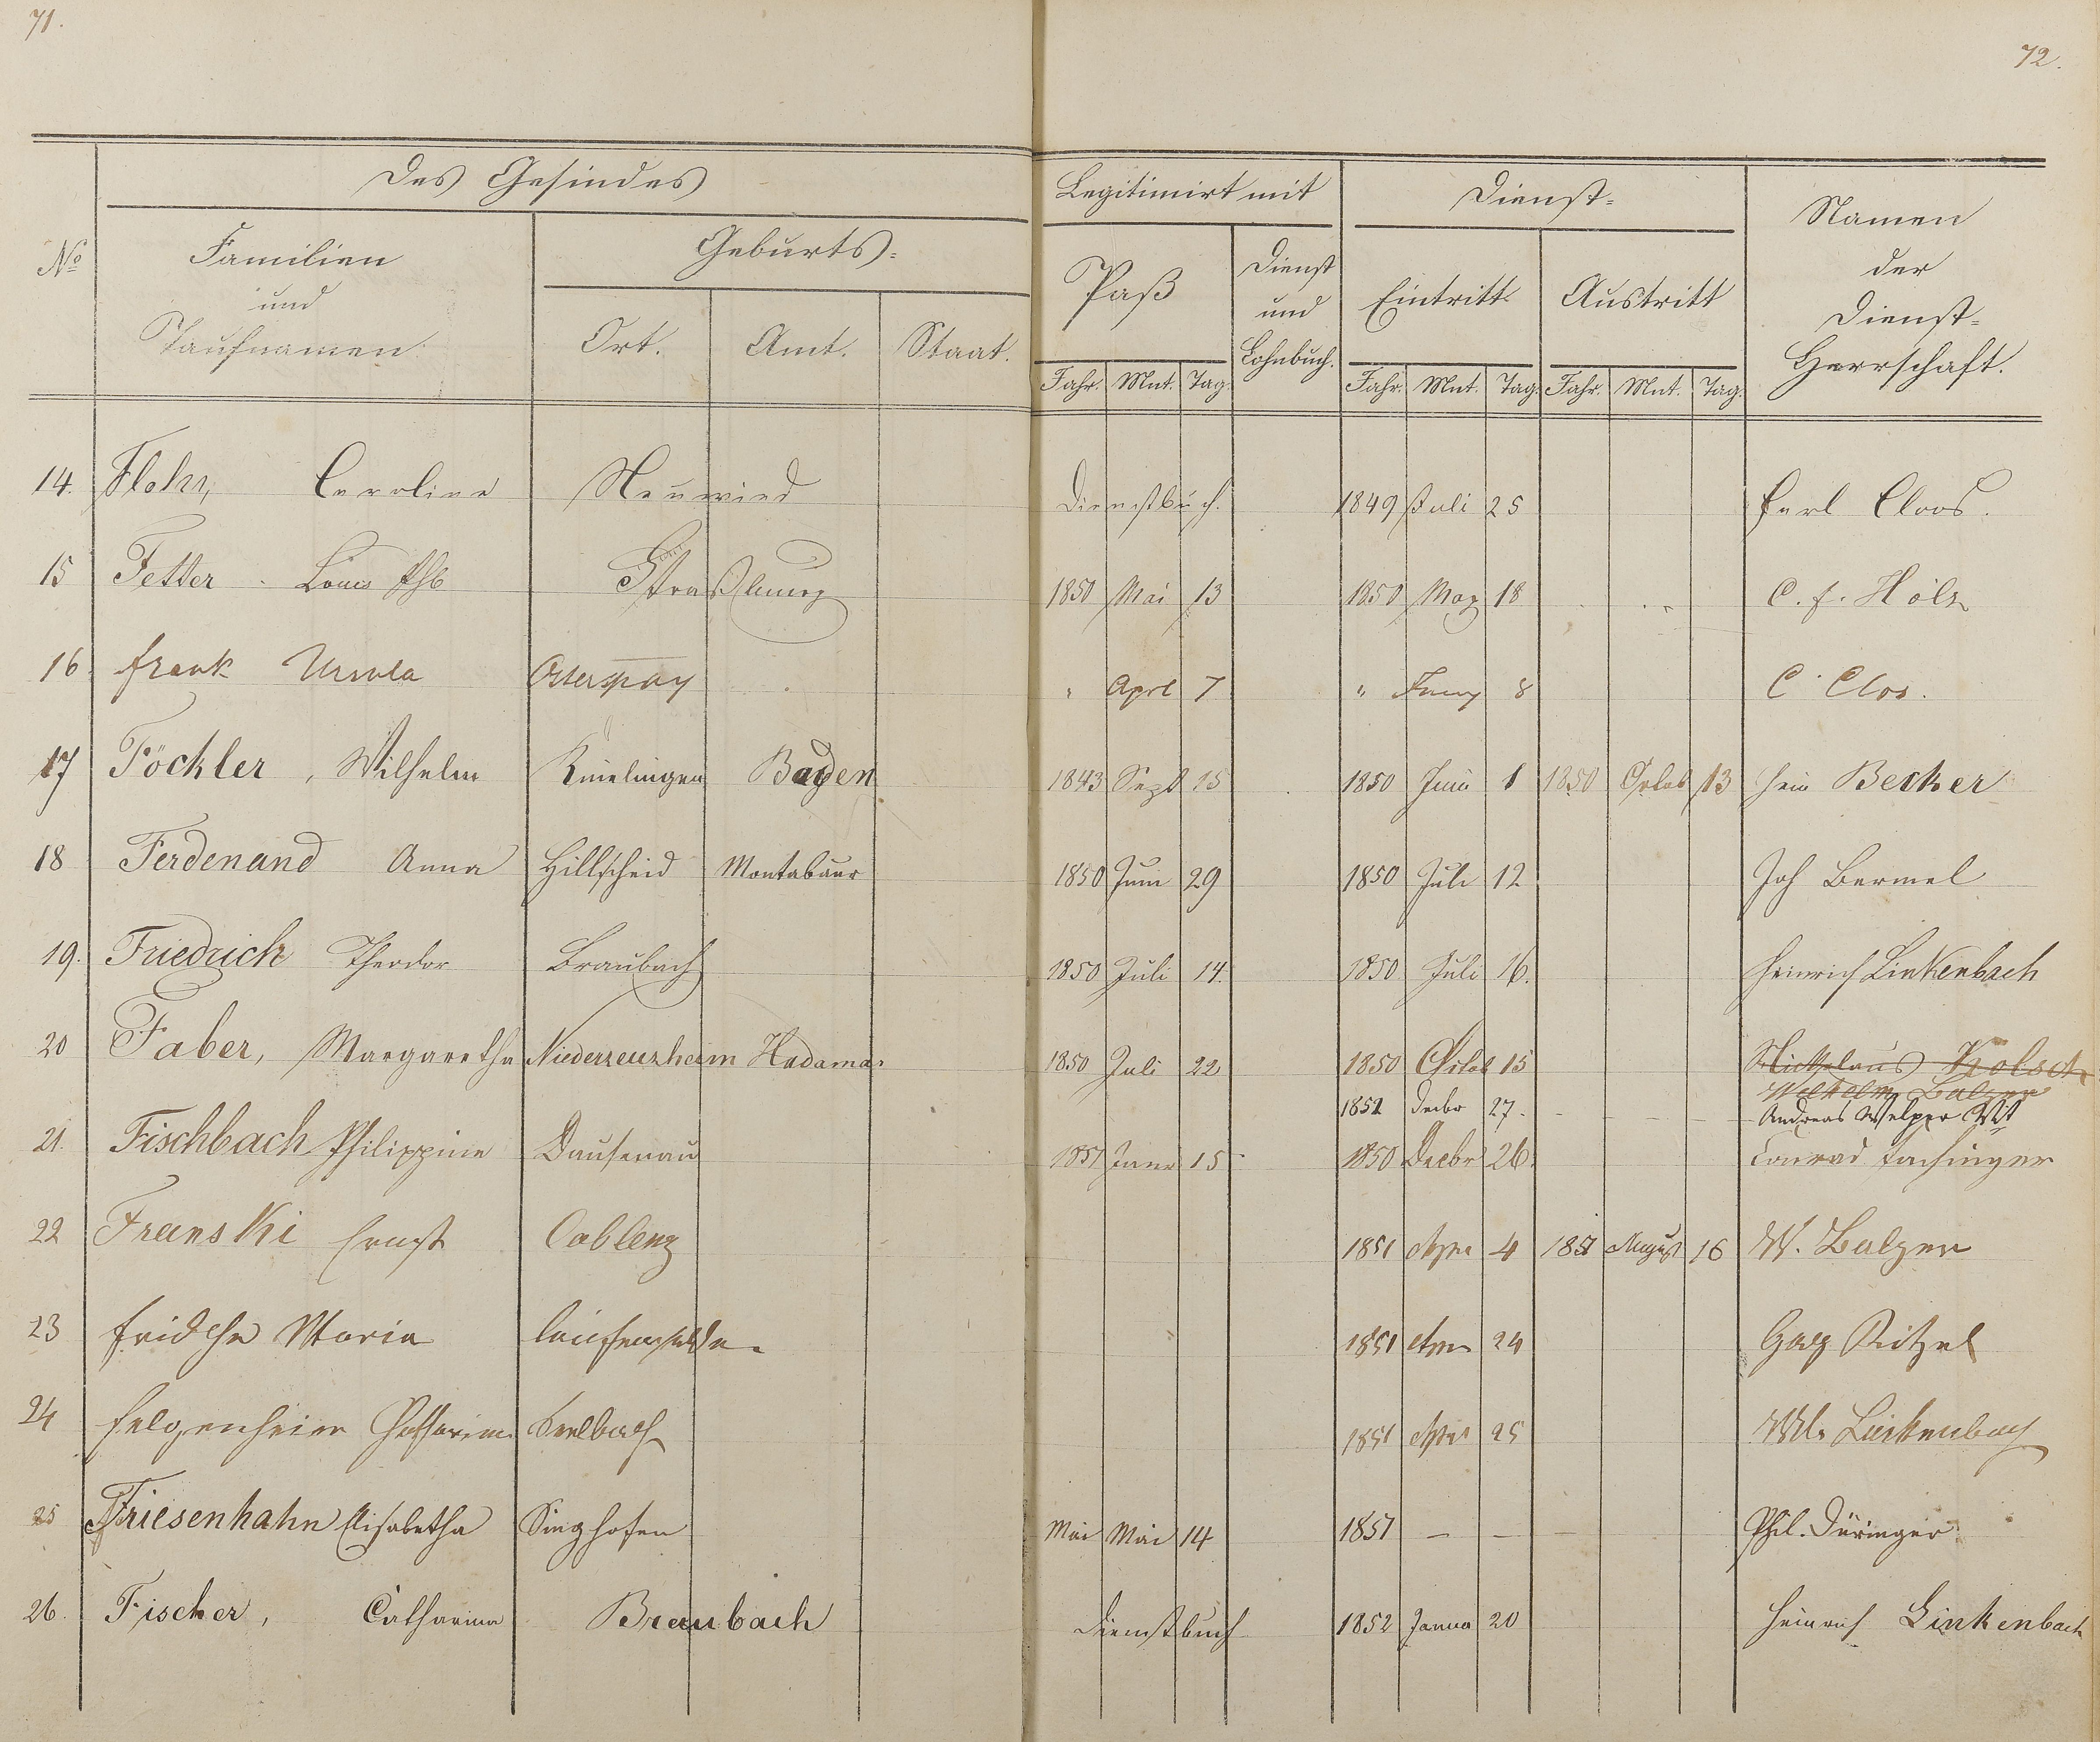 71.
72.
Des Gesindes
Legitimirt mit
Dienst-
Namen
der
Dienst-
Herrschaft.
No
Familien
und
Taufnamen.
Geburts-
Ort. Amt. Staat.
Paß
Dienst
und
Lohnbuch.
Eintritt Austritt
Jahr. Mnt. Tag. Jahr. Mnt. Tag. Jahr. Mnt. Tag.
14. Flohr, Caroline Neuwied Dienstbuch. 1849 Juli 25 Carl Cloos.
15 Fetter Louis Straßburg 1850 Mai 13 1850 May 18 C. F. Hölz
16 Frank Ursula Osterspay " Aprl 7 " Juny 8 C Clos.
17 Föckler, Wilhelm Knielingen Baden 1843 Sept 15 1850 Juni 1 1850 Octob 13 Hein Becker
18 Ferdenand Anna Hillscheid Montabaur 1850 Juni 29 1850 Juli 12 Joh Bermel
19. Friedrich Theodor Braubach 1850 Juli 14. 1850 Juli 16. Heinrich Linkenbach
20 Faber, Margaretha Niederzeuzheim Hadamar 1850 Juli 22 1850 Octob 15 Nickolaus Kolsch
Wilhelm Balzer
1852 Decbr 27. Andreas Welper Wt
21. Fischbach Philippine Dausenau 1851 Janr 15 1850 Decbr 26. Conrad Fachinger
22 Franski Ernst Coblenz 1851 Apr 4 1851 August 16 W. Balzer
23 Fridche Maria 1851 Apr 24 Georg Ritzel
24 Felgenheier Catharina 1851 Apr 25 Wl. Linkenbach
25 Friesenhahn Elisabetha Singhofen Mai Mai 14 1851 — — Phil. Düringer
26. Fischer, Catharina Braubach Dienstbuch 1852 Janua 20 Heinrich Linkenbach